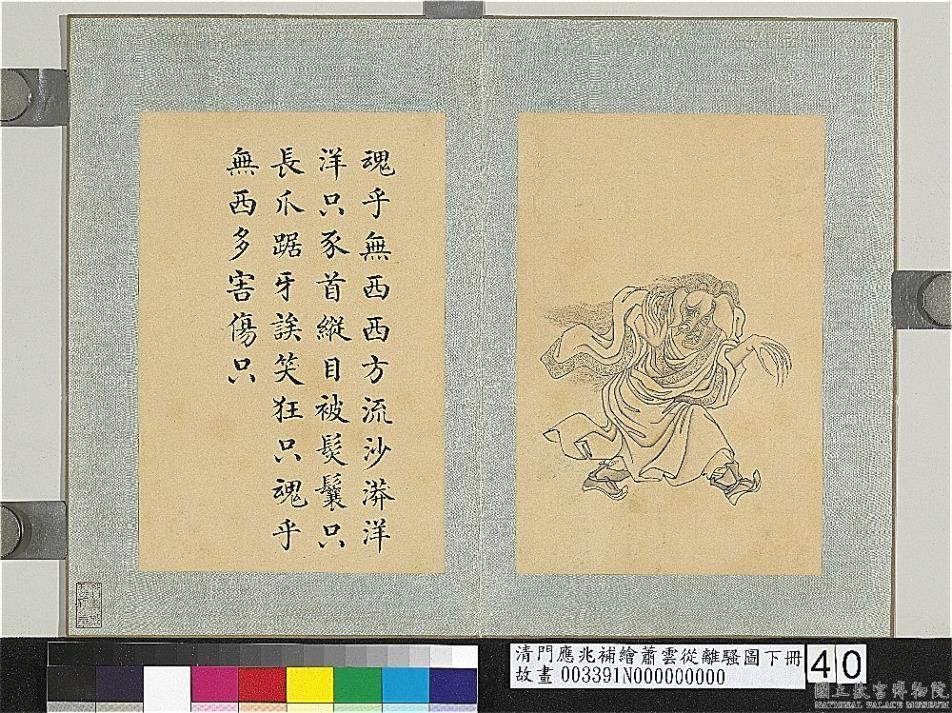 魂乎無西西方流沙漭洋
洋只豕首縱目被髮鬤只
長爪踞牙誒笑狂只魂乎
無西多害傷只
清門應兆補繪蕭雲從離騷圖下冊
故畫003391N000000000
40
國立故宮博物院
NATIONAL PALACE MUSEUM